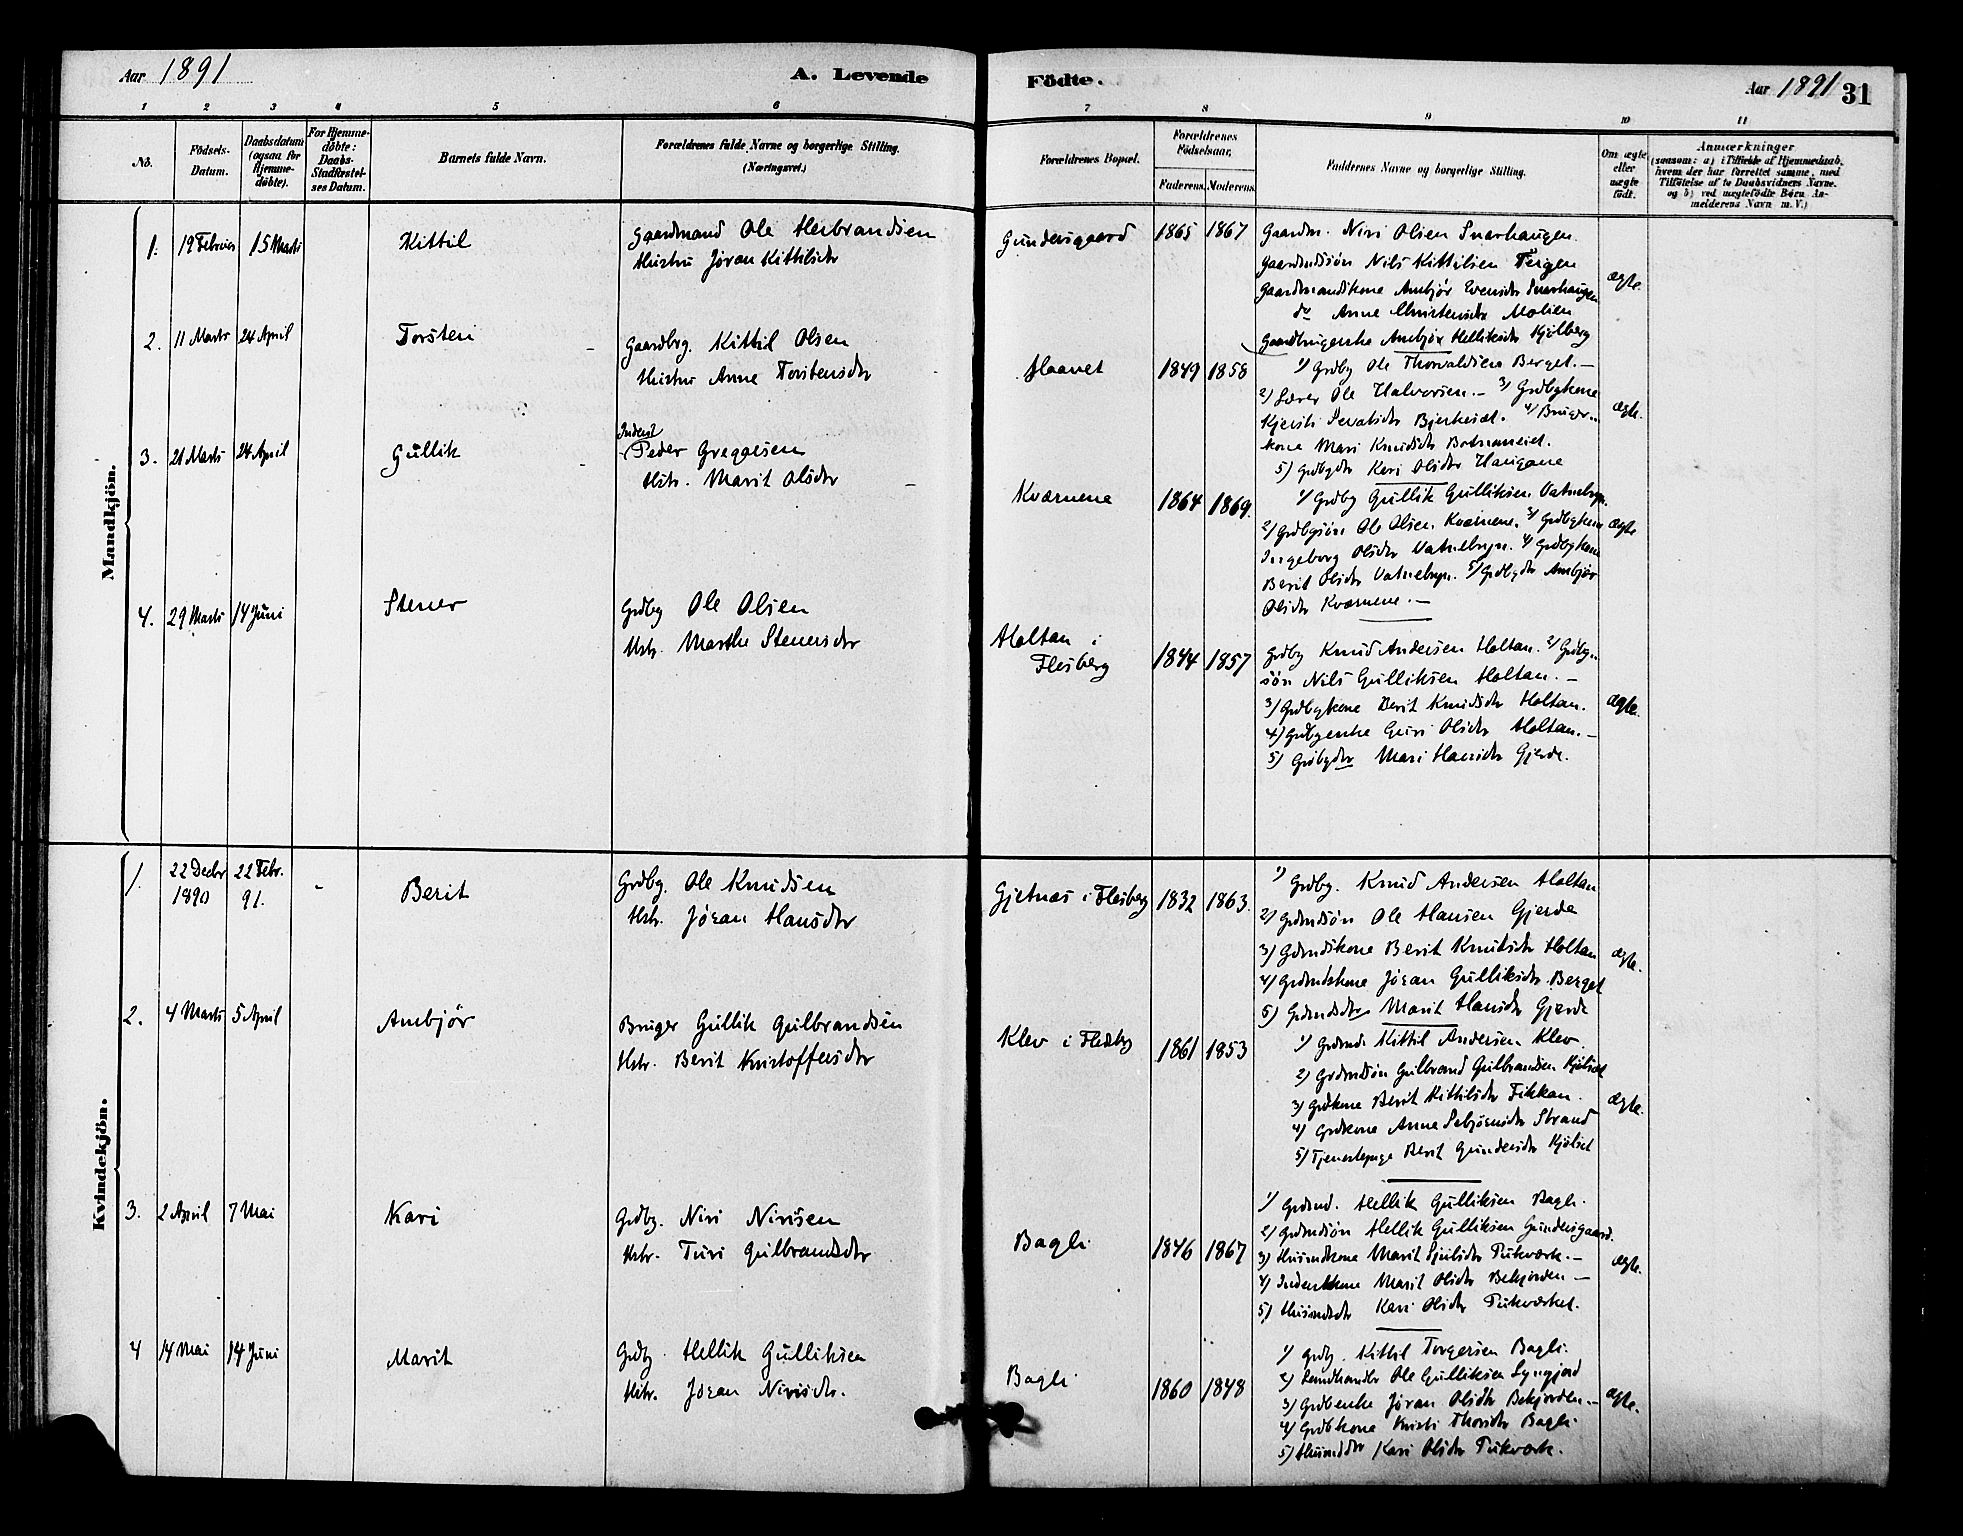 Aar 1891
A. Levende
Födte.
Aar 1891 31
1 2 3 4 5 6 7 8 9 10 11
No.
Födsels-
Datum.
Daabsdatum
(ogsaa for
Hjemme-
döbte).
For Hjemme-
döbte:
Daabs-
Stadfæstel-
ses Datum.
Barnets fulde Navn.
Forældrenes fulde Navne og borgerlige Stilling.
(Næringsvei.)
Forældrenes Bopæl.
Forældrenes
Födselsaar.
Faderens. Moderens.
Faddernes Navne og borgerlige Stilling.
Om ægte
eller
uægte
födt.
Anmærkninger
(saasom: a) i Tilfælde af Hjemmedaab,
hvem der har forrettet samme, med
Tilföielse af to Daabsvidners Navne,
og b) ved uægtefödte Börn An-
melderens Navn m. V.)
Mandkjön.
1. 19 Februar 15 Marts Kittil
Gaardmand Ole Herbrandsen
Hustru Jøran Kittilsdtr
Gundersgaard 1865 1867
Gaardm. Niri Olsen Snarhaugen.
Gaardmdsön Nils Kittilsen Teigen
Gaardmandskone Ambjør Evensdtr Snarhaugen
do Anne Christensdtr Molien
Gaardbrugerske Ambjør Helliksdtr Kjølberg
ægte.
2. 11 Marts 24 April Torsten
Gaardbrg. Kittil Olsen
Hustru Anne Torstensdtr
Haavet 1849 1858
1) Grdbg Ole Thorvaldsen Berget. —
2) Lærer Ole Halvorsen. — 3) Grdbgkone
Kjersti Sevatsdtr Bjerkesæt. 4) Bruger-
kone Mari Knudsdtr Botnaneiet.
5) Grdbgdtr Kari Olsdtr Haugane
ægte.
3. 21 Marts 24 April Gullik
Inderst
Peder Greggesen
Hstr. Marit Olsdtr
Kværnene 1864 1869.
1) Grdbg Gullik Gulliksen Vatnebryn.
2) Grdbgsön Ole Olsen Kværnene. 3) Grdbgkone
Ingeborg Olsdtr Vatnebryn. 4) Grdbgkone
Berit Olsdtr Vatnebryn. 5) Grdbgdtr Ambjør
Olsdtr Kværnene. —
ægte
4. 29 Marts 14 Juni Stener
Grdbg Ole Olsen
Hstr. Marthe Stenersdtr
Holtan i
Flesberg 1844 1857
Grdbg Knud Andersen Holtan. 2) Grdbg-
sön Nils Gulliksen Holtan. —
3) Grdbgkone Berit Knudsdtr Holtan.
4) Grdbgerske Guri Olsdtr Holtan. —
5) Grdbgdtr Mari Hansdtr Gjerde.
ægte.
Kvindekjön.
1. 22 Decbr 1890 22 Febr. 91. Berit
Grdbg. Ole Knudsen
Hstr. Jöran Hansdtr
Gjetnæs i Flesberg 1832 1863.
1) Grdbg. Knud Andersen Holtan
2) Grdmdsön Ole Hansen Gjerde
3) Grdmdskone Berit Knudsdtr Holtan
4) Grdmdskone Jöran Gulliksdtr Berget
5) Grdmdsdtr Marit Hansdtr Gjerde
ægte.
2. 4 Marts 5 April Ambjør
Bruger Gullik Gulbrandsen
Hstr. Berit Kristoffersdtr
Klev i Flesberg 1861 1853
1) Grdmd. Kittil Andersen Klev.
2) Grdmdsön Gulbrand Gulbrandsen Kjölset
3) Grdkone Berit Kittilsdtr Fikkan.
4) Grdkone Anne Sebjørnsdtr Strand
5) Tjenestepige Berit Gundersdtr Kjölset
ægte.
3. 2 April 7 Mai Kari
Grdbg. Niri Nirisen
Hstr. Turi Gulbrandsdtr
Bagli 1846 1867
1) Grdmd. Hellik Gulliksen Bagli.
2) Grdmdsön Hellik Gulliksen Gundersgaard.
3) Husmdkone Marit Sjulsdtr Pukværk. —
4) Inderstkone Marit Olsdtr Bekjorden —
5) Husmdsdtr Kari Olsdtr Pukværket.
ægte.
4 14 Mai 14 Juni Marit
Grdbg. Hellik Gulliksen
Hstr. Jöran Nirisdtr.
Bagli 1860 1848
1) Grdbg. Kittil Torgersen Bagli.
2) Landhandler Ole Gulliksen Lyngjord
3) Grdberske Jøran Olsdtr Bekjorden. —
4) Grdbkone Kristi Thorsdtr Bagli
5) Husmddtr Kari Olsdtr Pukværk.
ægte.